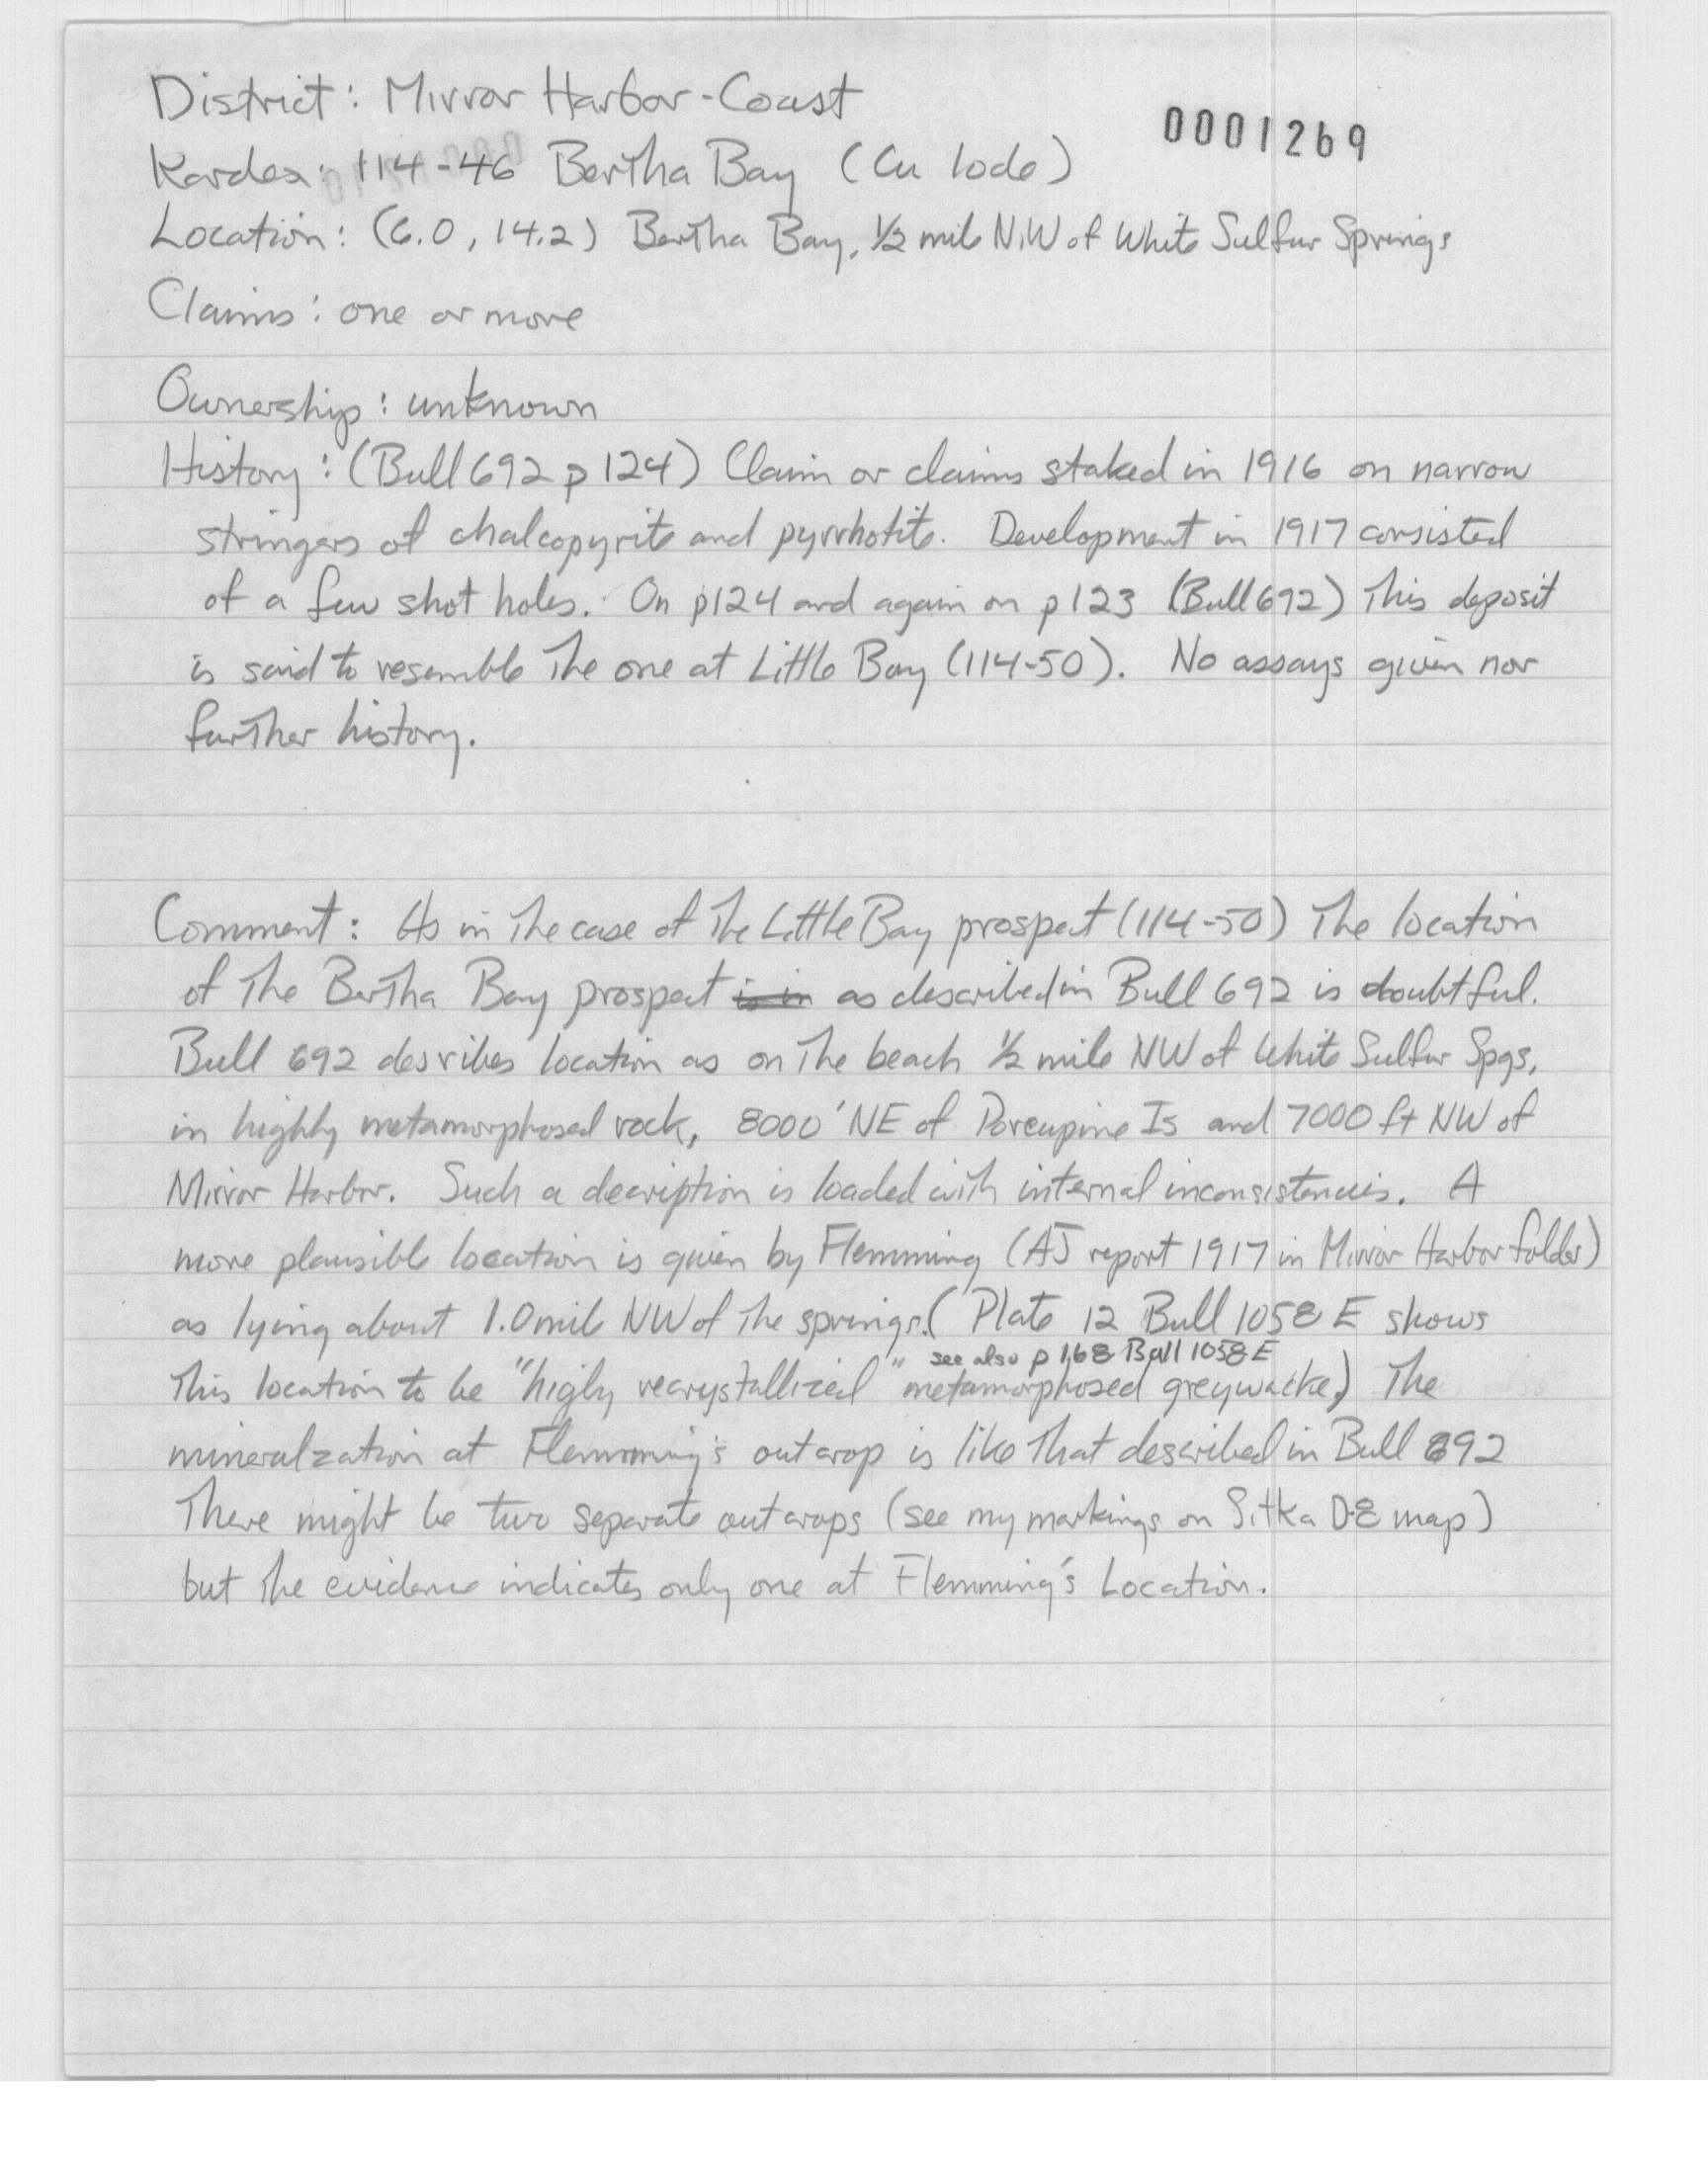 District: Mirror Harbor-Coast
0001269
Kardex: 114-46 Bertha Bay (Cu lode)
Location: (6.0, 14.2) Bertha Bay, 1/2 mile N.W of White Sulfur Springs
Claims: one or more
Ownership: unknown
History: (Bull 692 p 124) Claim or claims staked in 1916 on narrow
stringers of chalcopyrite and pyrrhotite. Development in 1917 consisted
of a few shot holes. On p124 and again on p 123 (Bull 692) This deposit
is said to resemble The one at Little Bay (114-50). No assays given nor
further history.
Comment: As in The case of The Little Bay prospect (114-50) The location
of The Bertha Bay prospect as described in Bull 692 is doubtful.
Bull 692 desribes location as on The beach 1/2 mile NW of White Sulfur Spgs,
in highly metamorphosed rock, 8000' NE of Porcupine Is and 7000 ft NW of
Mirror Harbor. Such a decription is loaded with internal inconsistencies. A
more plausible location is given by Flemming (AJ report 1917 in Mirror Harbor folder)
as lying about 1.0 mile NW of The springs. (Plate 12 Bull 1058 E shows
see also p 168 Bull 1058 E
This location to be "higly recrystallized" metamorphosed greywacke.) The
mineralzation at Flemming's outcrop is like That described in Bull 692
There might be two separate outcrops (see my markings on Sitka D-8 map)
but The evidence indicates only one at Flemming's Location.